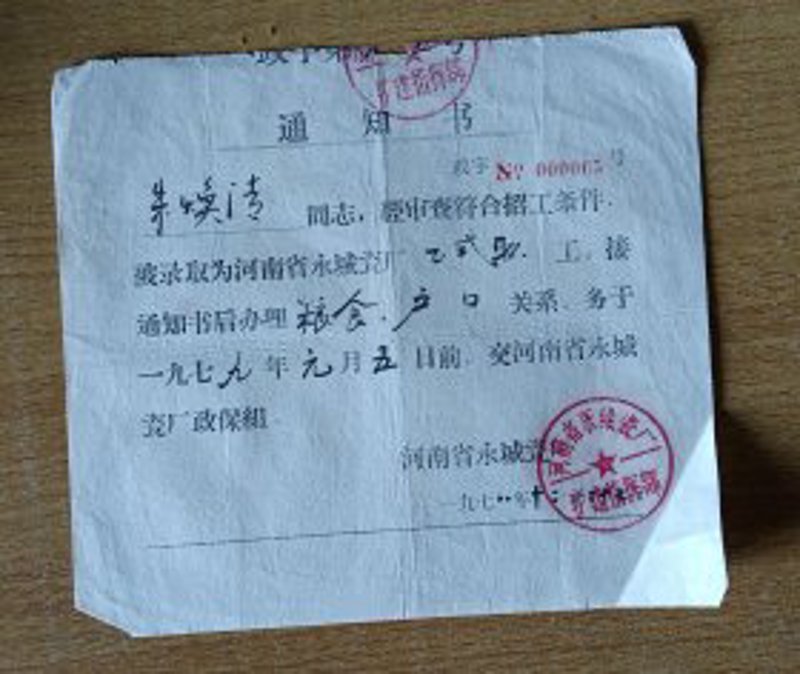 通知书
政字 № 000005 号
朱焕清 同志，经审查符合招工条件．
被录取为河南省永城瓷厂 正式职 工，接
通知书后办理 粮食、户口 关系、务于
一九七九年元月五日前．交河南省永城
瓷厂政保组
河南省永城瓷
河南省永城瓷厂